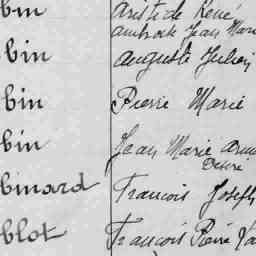 bin Aristide René
Ambroise Jean Marie
bin Auguste Julien
bin Pierre Marie
bin Jean Marie
Désiré
binard Francois Joseph
blot Francois Pierre